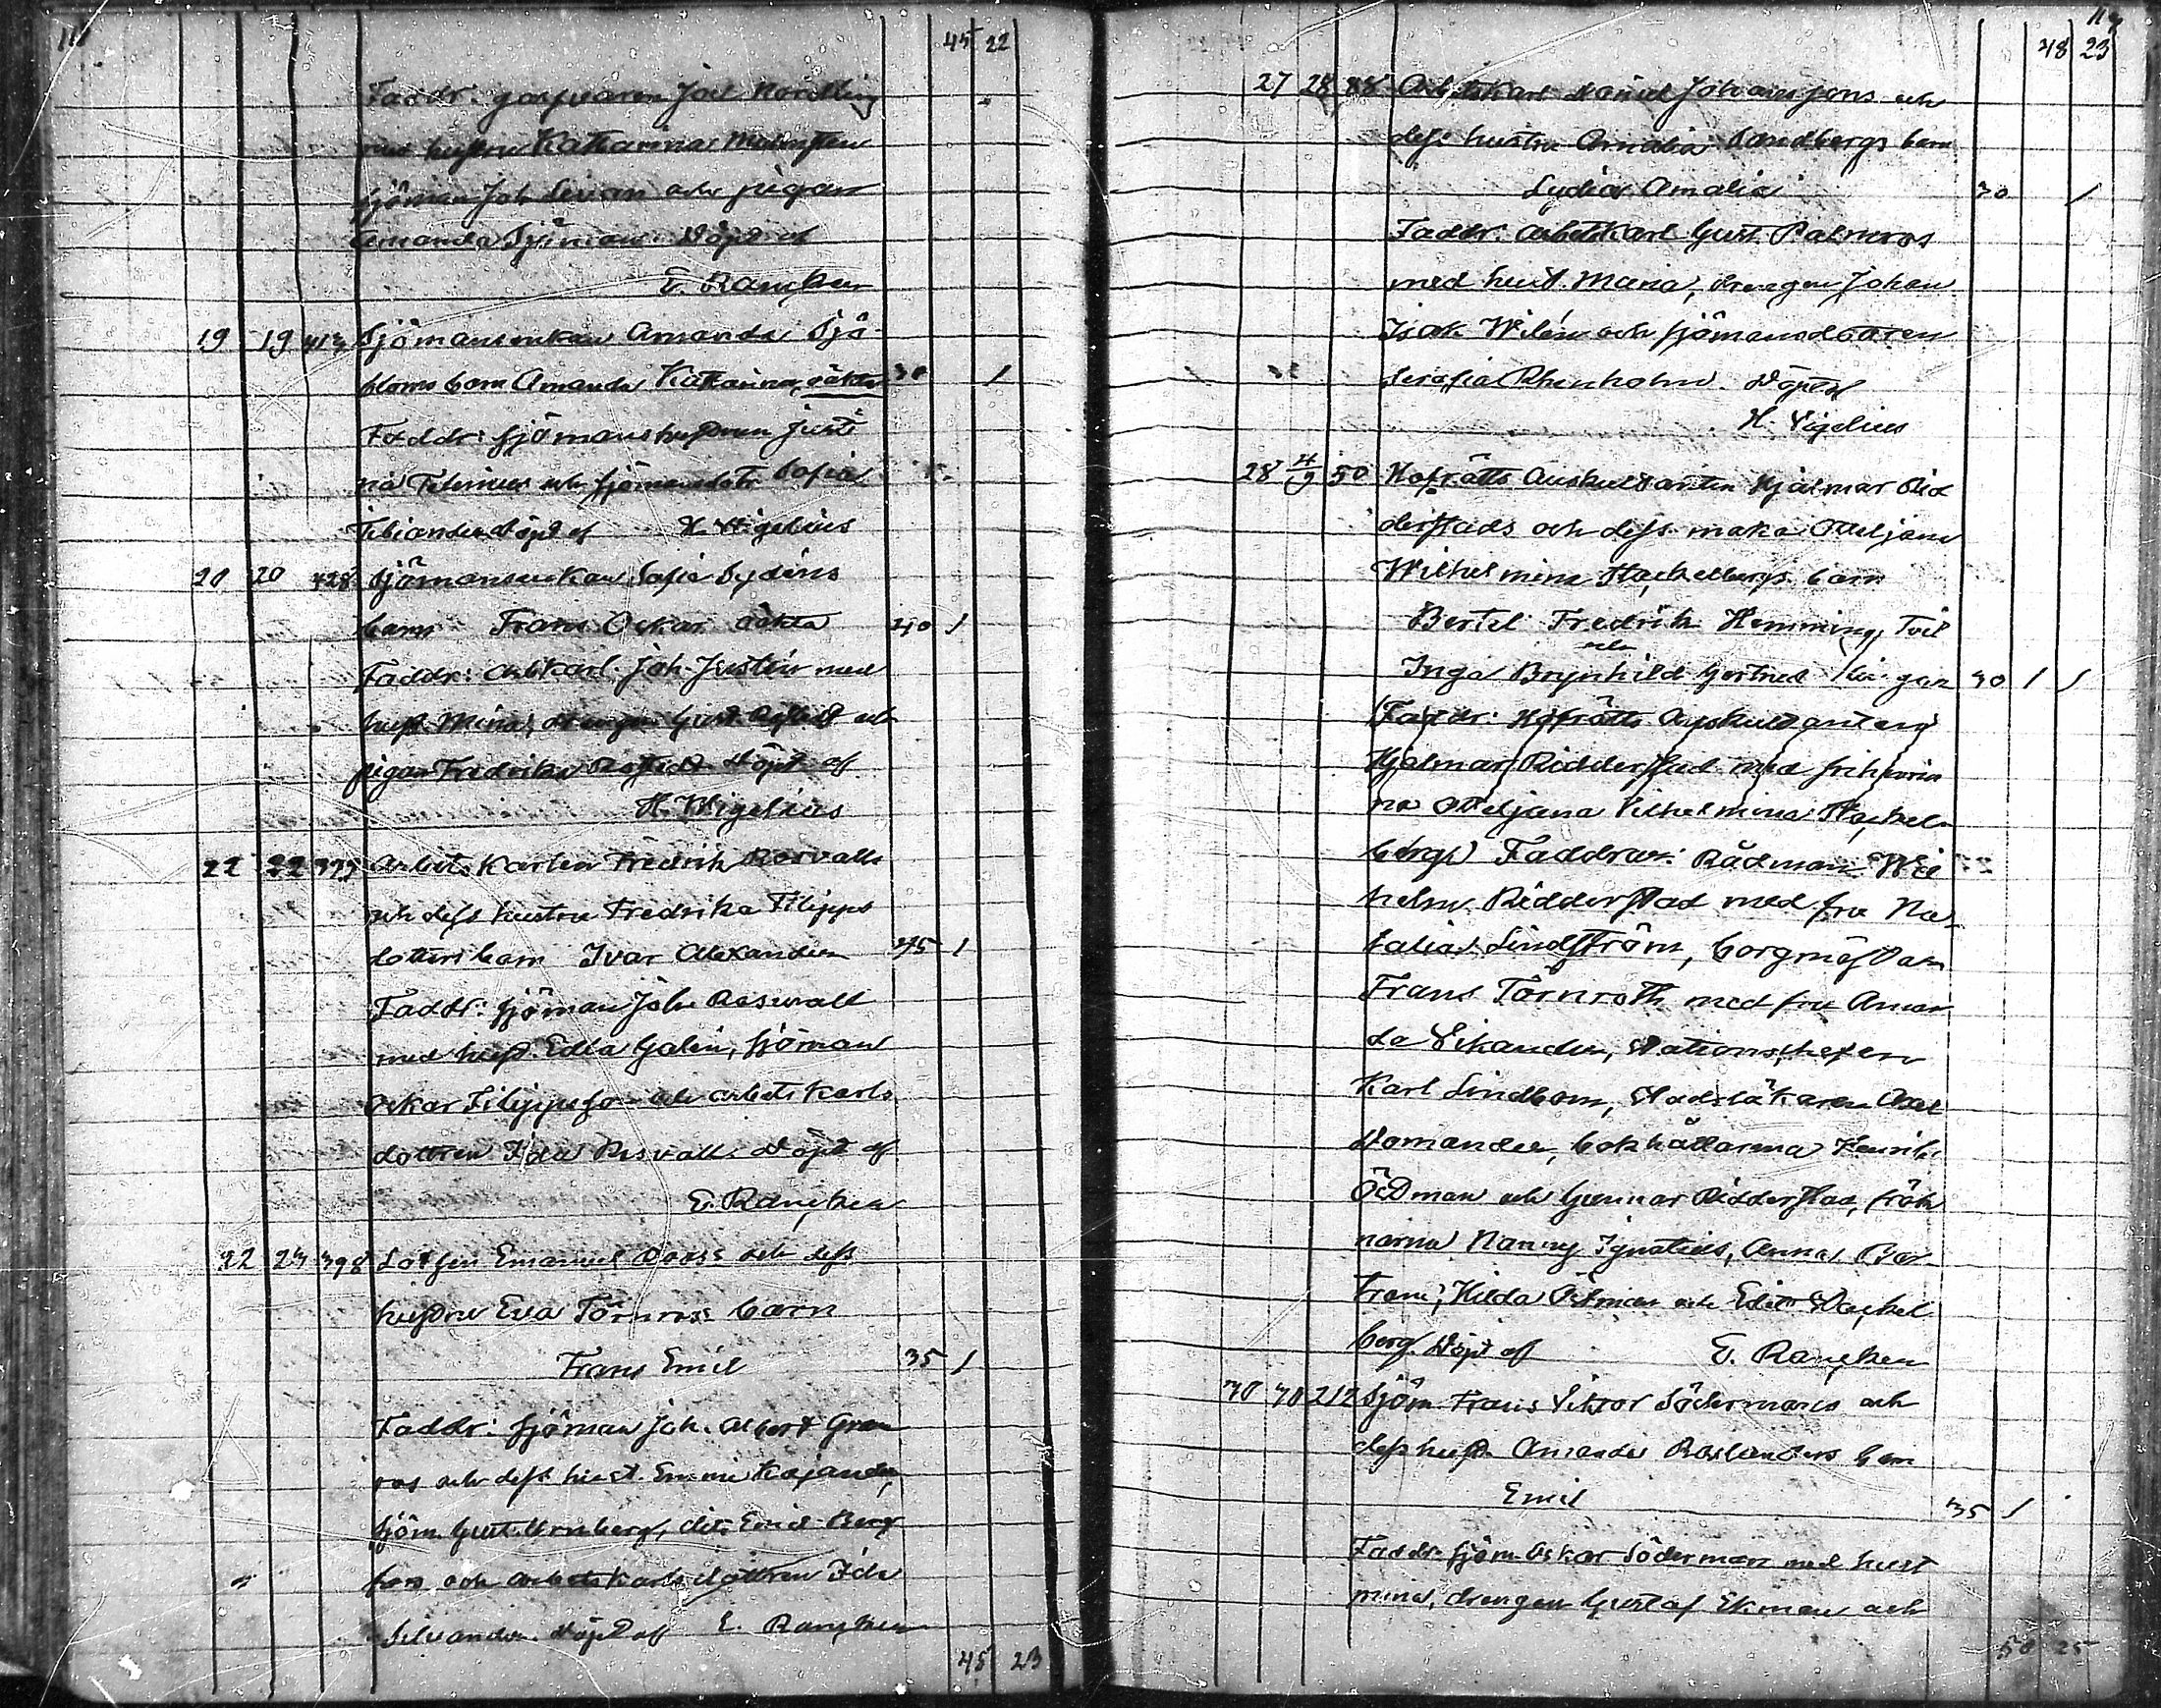 45 22
Faddr: Joel Nordling
med hustru Katharina
sjöman Joh och pigan
Amanda Sjöman. Döpt af
E. Rancken
19 19 Sjömansenkan Amanda Sjö-
bloms barn Amanda Katarina, oäkta 30 1
Faddr: sjömanshustrun Justi
na och sjömansdotr Sofia
Döpt af H. Vigelius
20 20 428 Sjömansenkan Sofia Sydéns
barn Frans Oskar oäkta 40 1
Faddr: arbkarl. Joh. Justén med
hust. Mina, drengen Gust. och
pigan Fredrika Döpt af
H. Wigelius
22 22 Arbetskarlen Fredrik Rosvalls
och dess hustru Fredrika Filipps
dotters barn Ivar Alexander 45 1
Faddr: sjöman Joh. Roswall
med hust. Edla Galin, sjöman
Oskar Filippsson och arbetskarls
dottren Ida Rosvall. Döpt af
E. Rancken
22 23 398 Lotsen Emanuel Roos's och dess
hustru Eva Törnroos barn
Frans Emil 35 1
Faddr: sjöman Joh. Albert Gran
ros och dess hust. Emmi Kajander,
sjöm. Gust. dito Emil Berg
fors och arbetskarlsdottren Ida
Silvander. Döpt af E. Rancken
45 23
48 23
27 28 88 Arbetskarl Daniel Johanssons och
dess hustru Amalia Sandbergs barn
Lydia Amalia 30 1
Faddr: arbetskarl Gust. Palmros
med hust. Maria, drengen Johan
Isak Wilén och sjömansdottren
Serafia Rhenholm. Döpt af
H. Vigelius
28 4/9 50 Hofrätts Auskultanten Hjalmar Rid
derstads och dess maka Otteljana
Wilhelmina Stackelbergs barn
Bertel Fredrik Hemming, Tvil
och
Inga Brynhild Gertrud lingar 30 1 1
(Faddr: Hofrätts Auskultanten
Hjalmar Ridderstad med friherrin
na Otteljana Vilhelmina Stackel-
berg) Faddrar: Rådman Wil
helm Ridderstad med fru Na-
talia Lindström, borgmästaren
Frans Törnroth med fru Aman
da Vikander, Stationschefen
Karl Lindbom, Stadsläkaren Axel
Domander, bokhållarna Henrik
Ödman och Gunnar Ridderstad, frök
narna Nanny Ignatius, Anna
Hilda Ödman och Edit Stackel
berg. Döpt af E. Rancken
30 30 212 Sjöm. Frans Viktor Södermans och
dess hust. Amanda barn
Emil 35 1
Faddr: sjöm. Oskar Söderman med hust
Mina, drengen Gustaf Ekman och
50 25